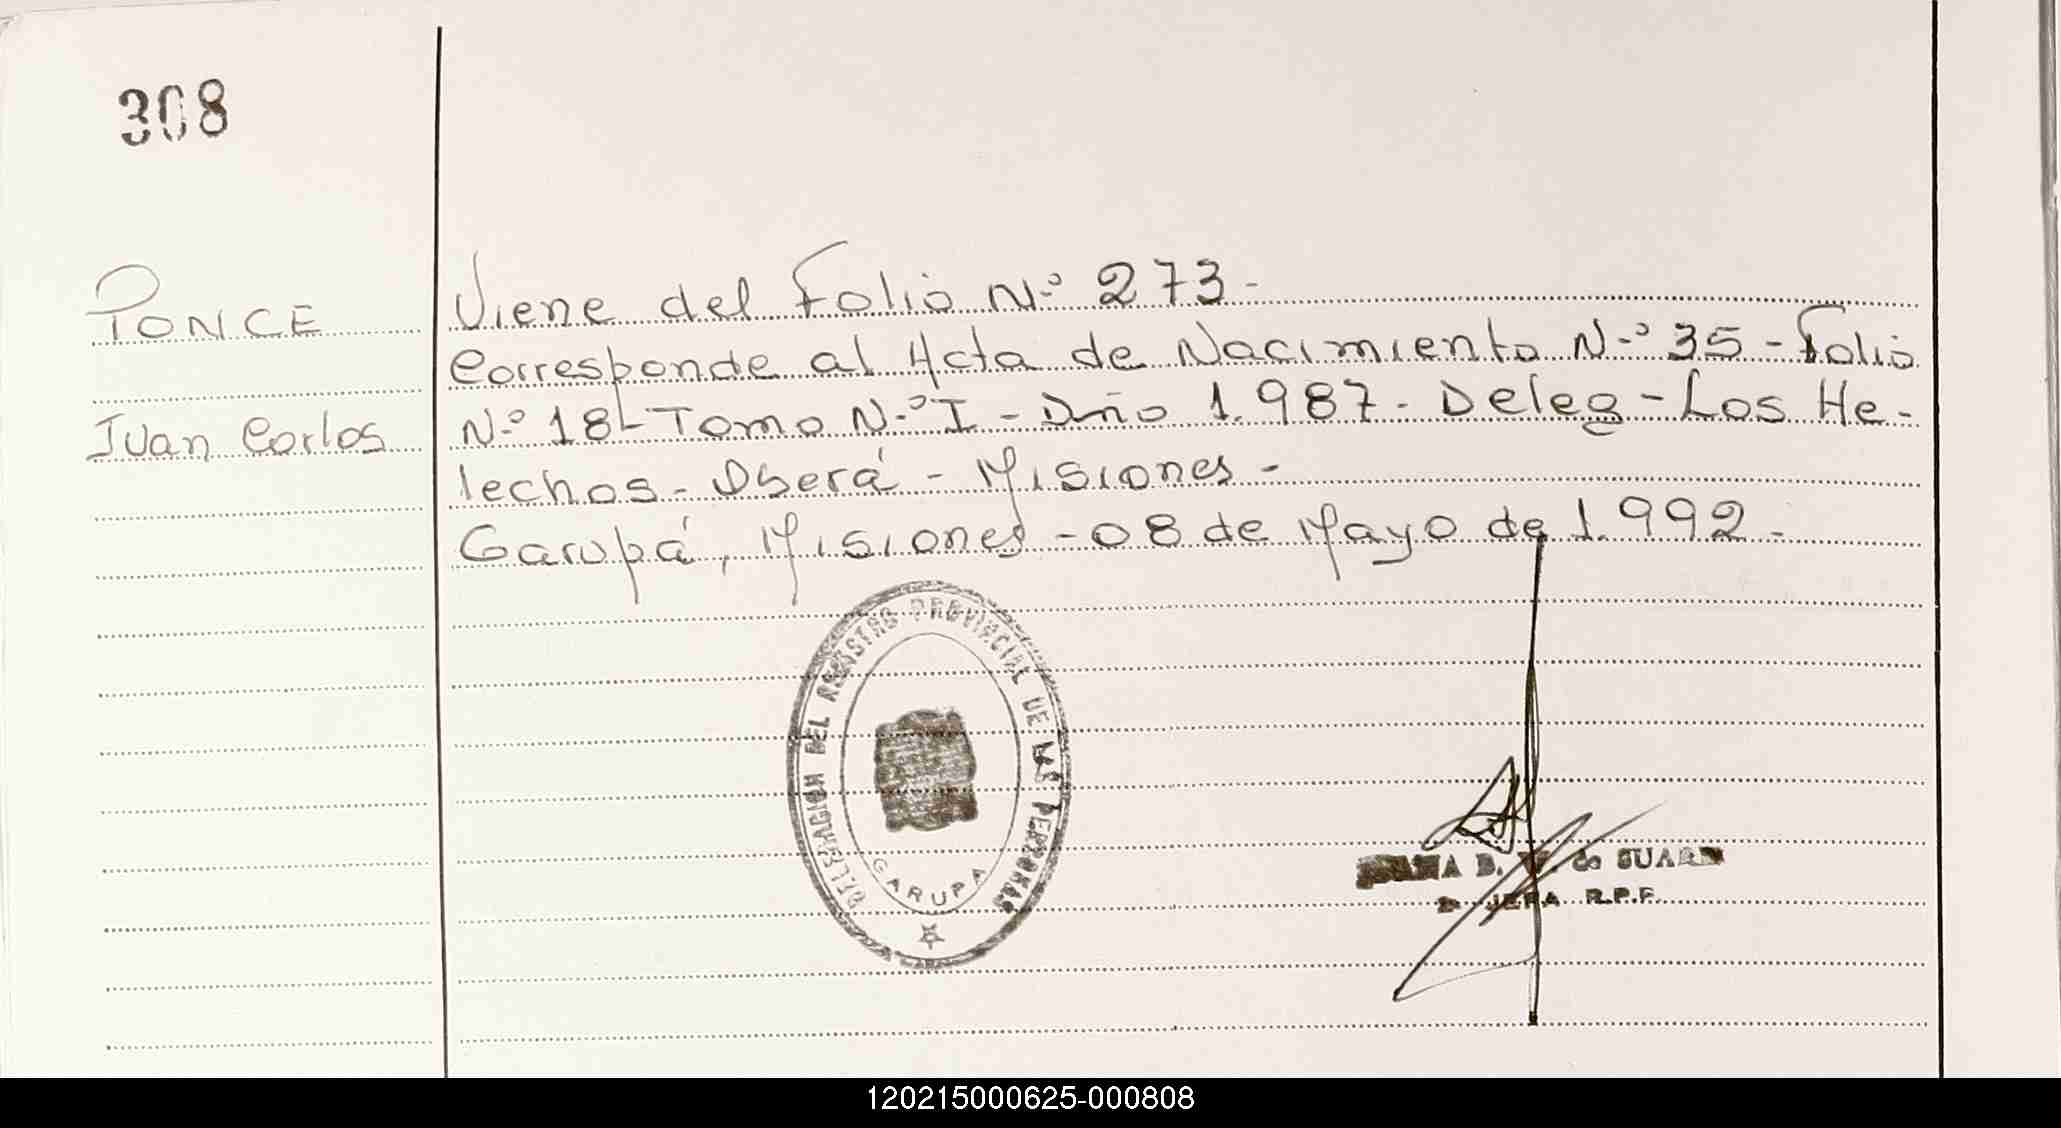 308
PONCE
Juan Carlos
Viene del Folio N.º 273-
Corresponde al Acta de Nacimiento N.º 35 - Folio
N.º 18 - Tomo N.º I - Año 1.987 - Deleg - Los He-
lechos - Oberá - Misiones -
Garupá, Misiones - 08 de Mayo de 1.992 -
DELEGACION DEL REGISTRO PROVINCIAL DE LAS PERSONAS
GARUPA
B. de
JEFA R.P.P.
120215000625-000808